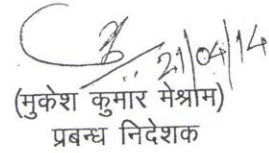 21/04/14
(मुकेश कुमार मेश्राम)
प्रबन्ध निदेशक